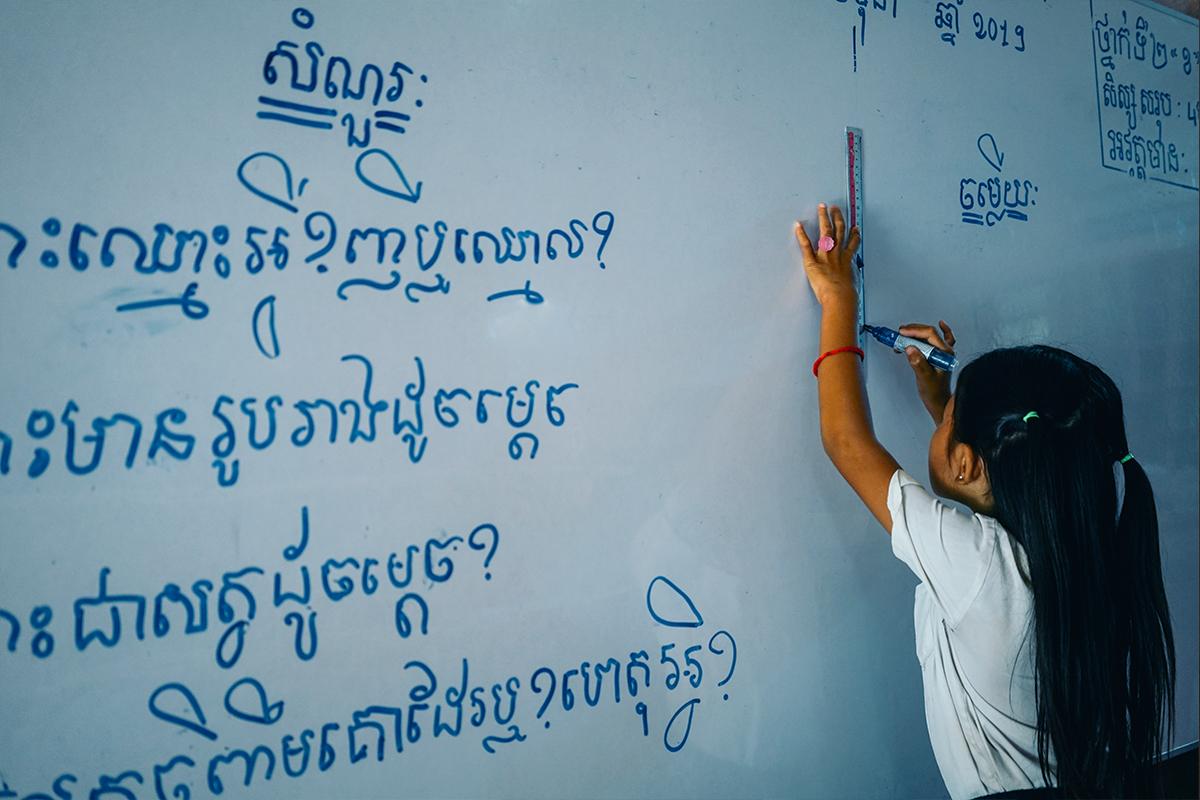 ឆ្នាំ 2019
ថ្នាក់ទី២ "ខ"
សិស្សសរុប : 4
អវត្តមាន:
សំណួរ:
ចម្លើយ:
ះឈ្មោះអ្វី? ញី ឬ ឈ្មោល?
ះមានរូបរាងដូចម្តេច
ះជាសត្វដូចម្តេច?
ពីមគោដែរឬ? ហេតុអ្វី?